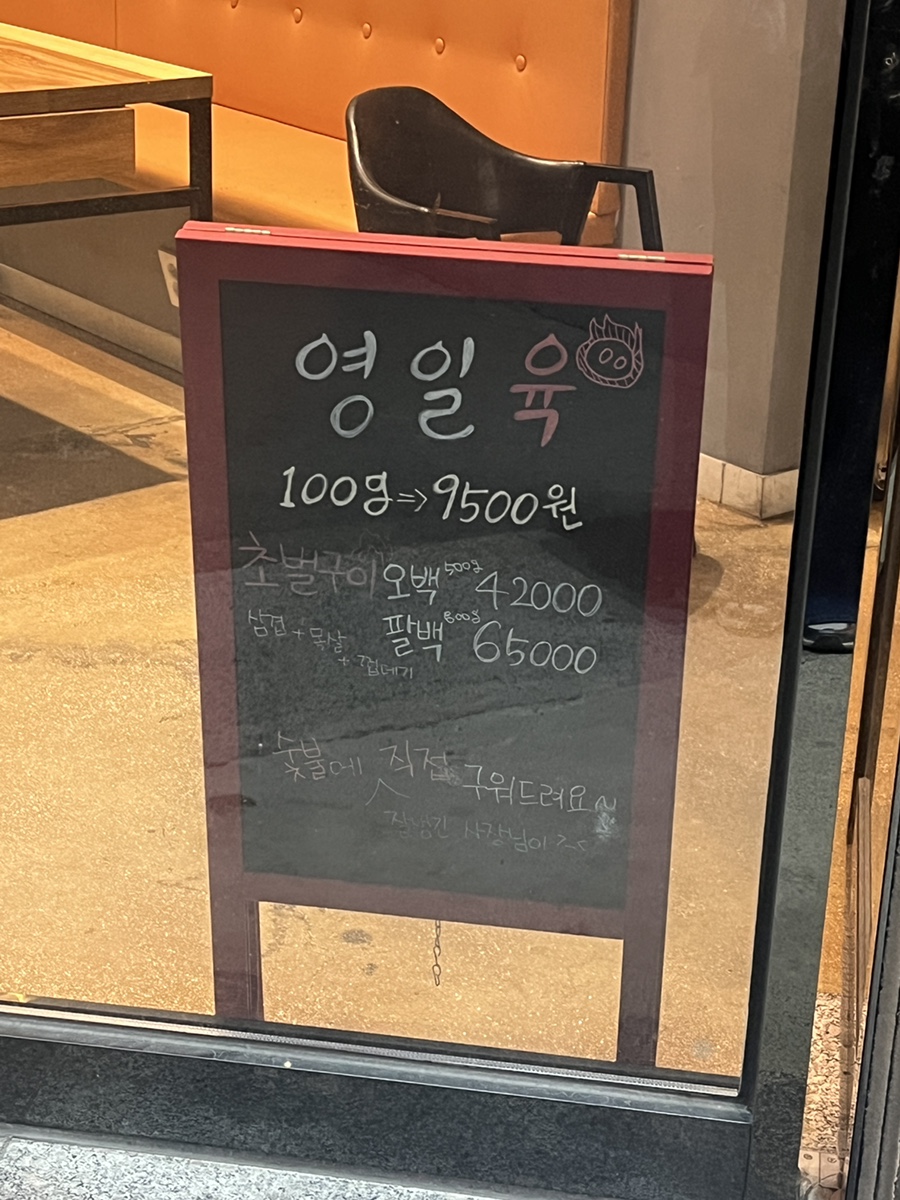 영일육
100g => 9500원
초벌구이 오백 500g 42000
삼겹 + 목살 팔백 800g 65000
+ 껍데기
숯불에 직접 구워드려요~
잘생긴 사장님이